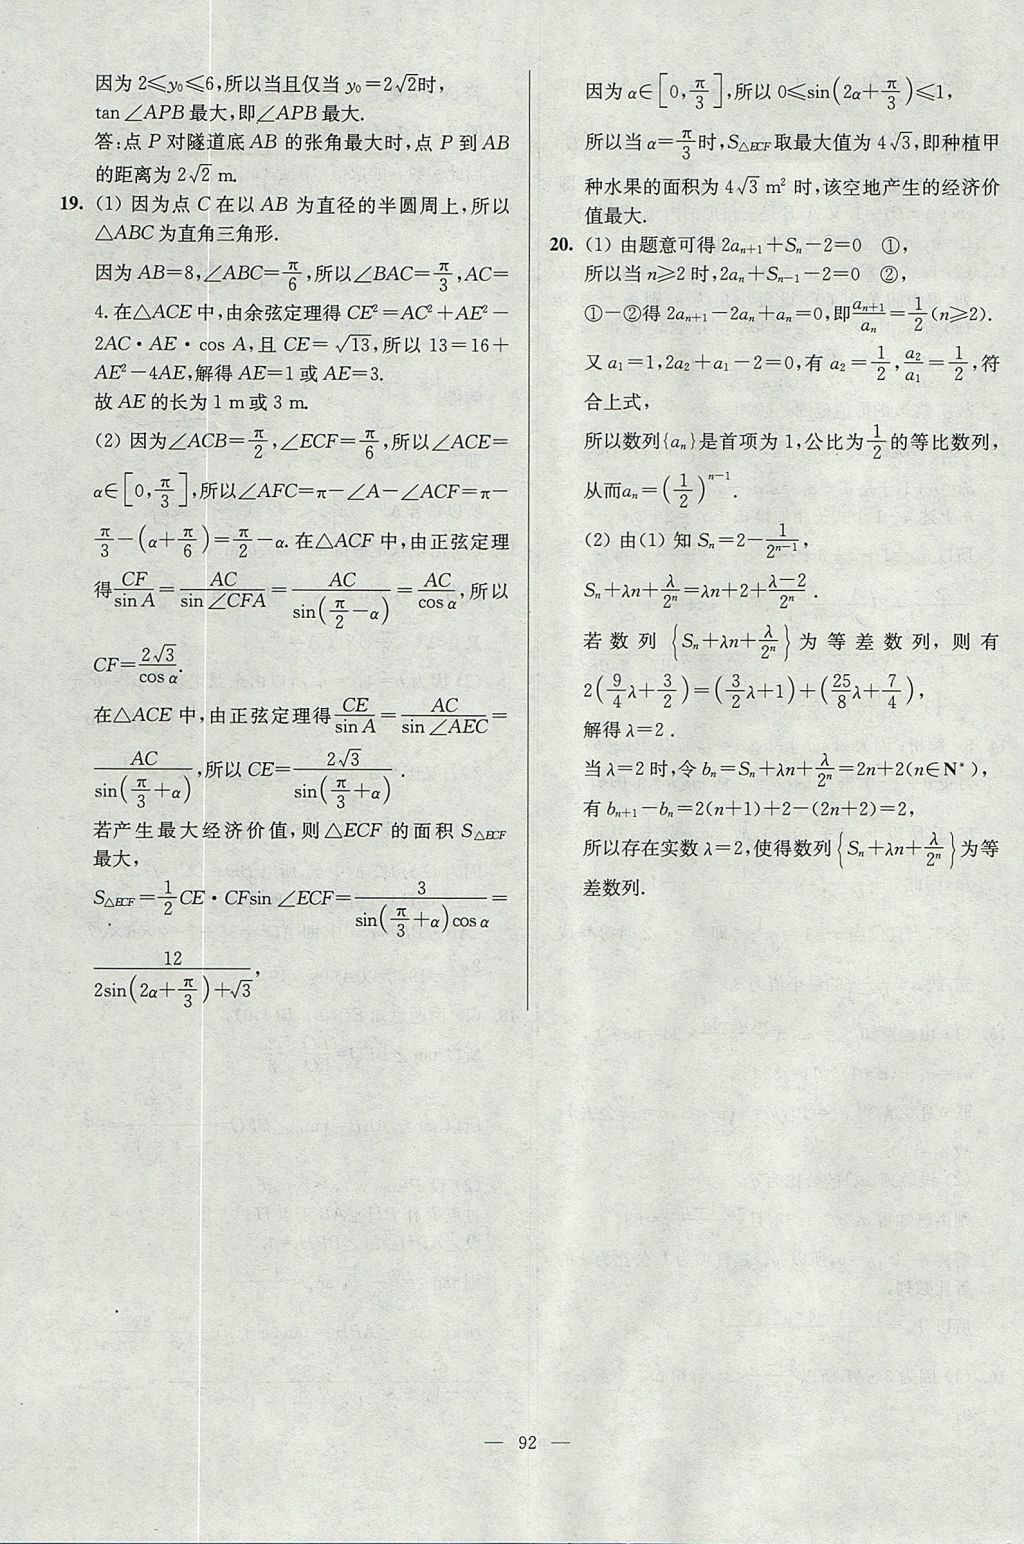 因为 2≤y₀≤6,所以当且仅当 y₀=2√2时,
tan∠APB 最大,即∠APB 最大.
答:点 P 对隧道底 AB 的张角最大时,点 P 到 AB
的距离为 2√2 m.
19. (1) 因为点 C 在以 AB 为直径的半圆周上,所以
△ABC 为直角三角形.
因为 AB=8,∠ABC=π/6,所以∠BAC=π/3,AC=
4. 在△ACE 中,由余弦定理得 CE²=AC²+AE²-
2AC·AE·cos A,且 CE=√13,所以 13=16+
AE²-4AE,解得 AE=1 或 AE=3.
故 AE 的长为 1 m 或 3 m.
(2) 因为∠ACB=π/2,∠ECF=π/6,所以∠ACE=
α∈[0,π/3],所以∠AFC=π-∠A-∠ACF=π-
π/3-(α+π/6)=π/2-α. 在△ACF 中,由正弦定理
得CF/sin A=AC/sin∠CFA=AC/sin(π/2-α)=AC/cos α,所以
CF=2√3/cos α.
在△ACE 中,由正弦定理得CE/sin A=AC/sin∠AEC=
AC/sin(π/3+α),所以 CE=2√3/sin(π/3+α).
若产生最大经济价值,则△ECF 的面积 S△ECF
最大,
S△ECF=1/2CE·CFsin∠ECF=3/sin(π/3+α)cos α=
12/2sin(2α+π/3)+√3,
因为 α∈[0,π/3],所以 0≤sin(2α+π/3)≤1,
所以当 α=π/3时,S△ECF取最大值为 4√3,即种植甲
种水果的面积为 4√3 m² 时,该空地产生的经济价
值最大.
20. (1) 由题意可得 2aₙ₊₁+Sₙ-2=0 ①,
所以当 n≥2 时,2aₙ+Sₙ₋₁-2=0 ②,
①-②得 2aₙ₊₁-2aₙ+aₙ=0,即aₙ₊₁/aₙ=1/2(n≥2).
又 a₁=1,2a₂+a₁-2=0,有 a₂=1/2,a₂/a₁=1/2,符
合上式,
所以数列{aₙ}是首项为 1,公比为1/2的等比数列,
从而aₙ=(1/2)ⁿ⁻¹.
(2) 由(1) 知 Sₙ=2-1/2ⁿ⁻¹,
Sₙ+λn+λ/2ⁿ=λn+2+(λ-2)/2ⁿ.
若数列{Sₙ+λn+λ/2ⁿ}为等差数列,则有
2(9/4λ+3/2)=(3/2λ+1)+(25/8λ+7/4),
解得 λ=2 .
当 λ=2 时,令 bₙ=Sₙ+λn+λ/2ⁿ=2n+2(n∈N*),
有 bₙ₊₁-bₙ=2(n+1)+2-(2n+2)=2,
所以存在实数 λ=2,使得数列{Sₙ+λn+λ/2ⁿ}为等
差数列.
— 92 —